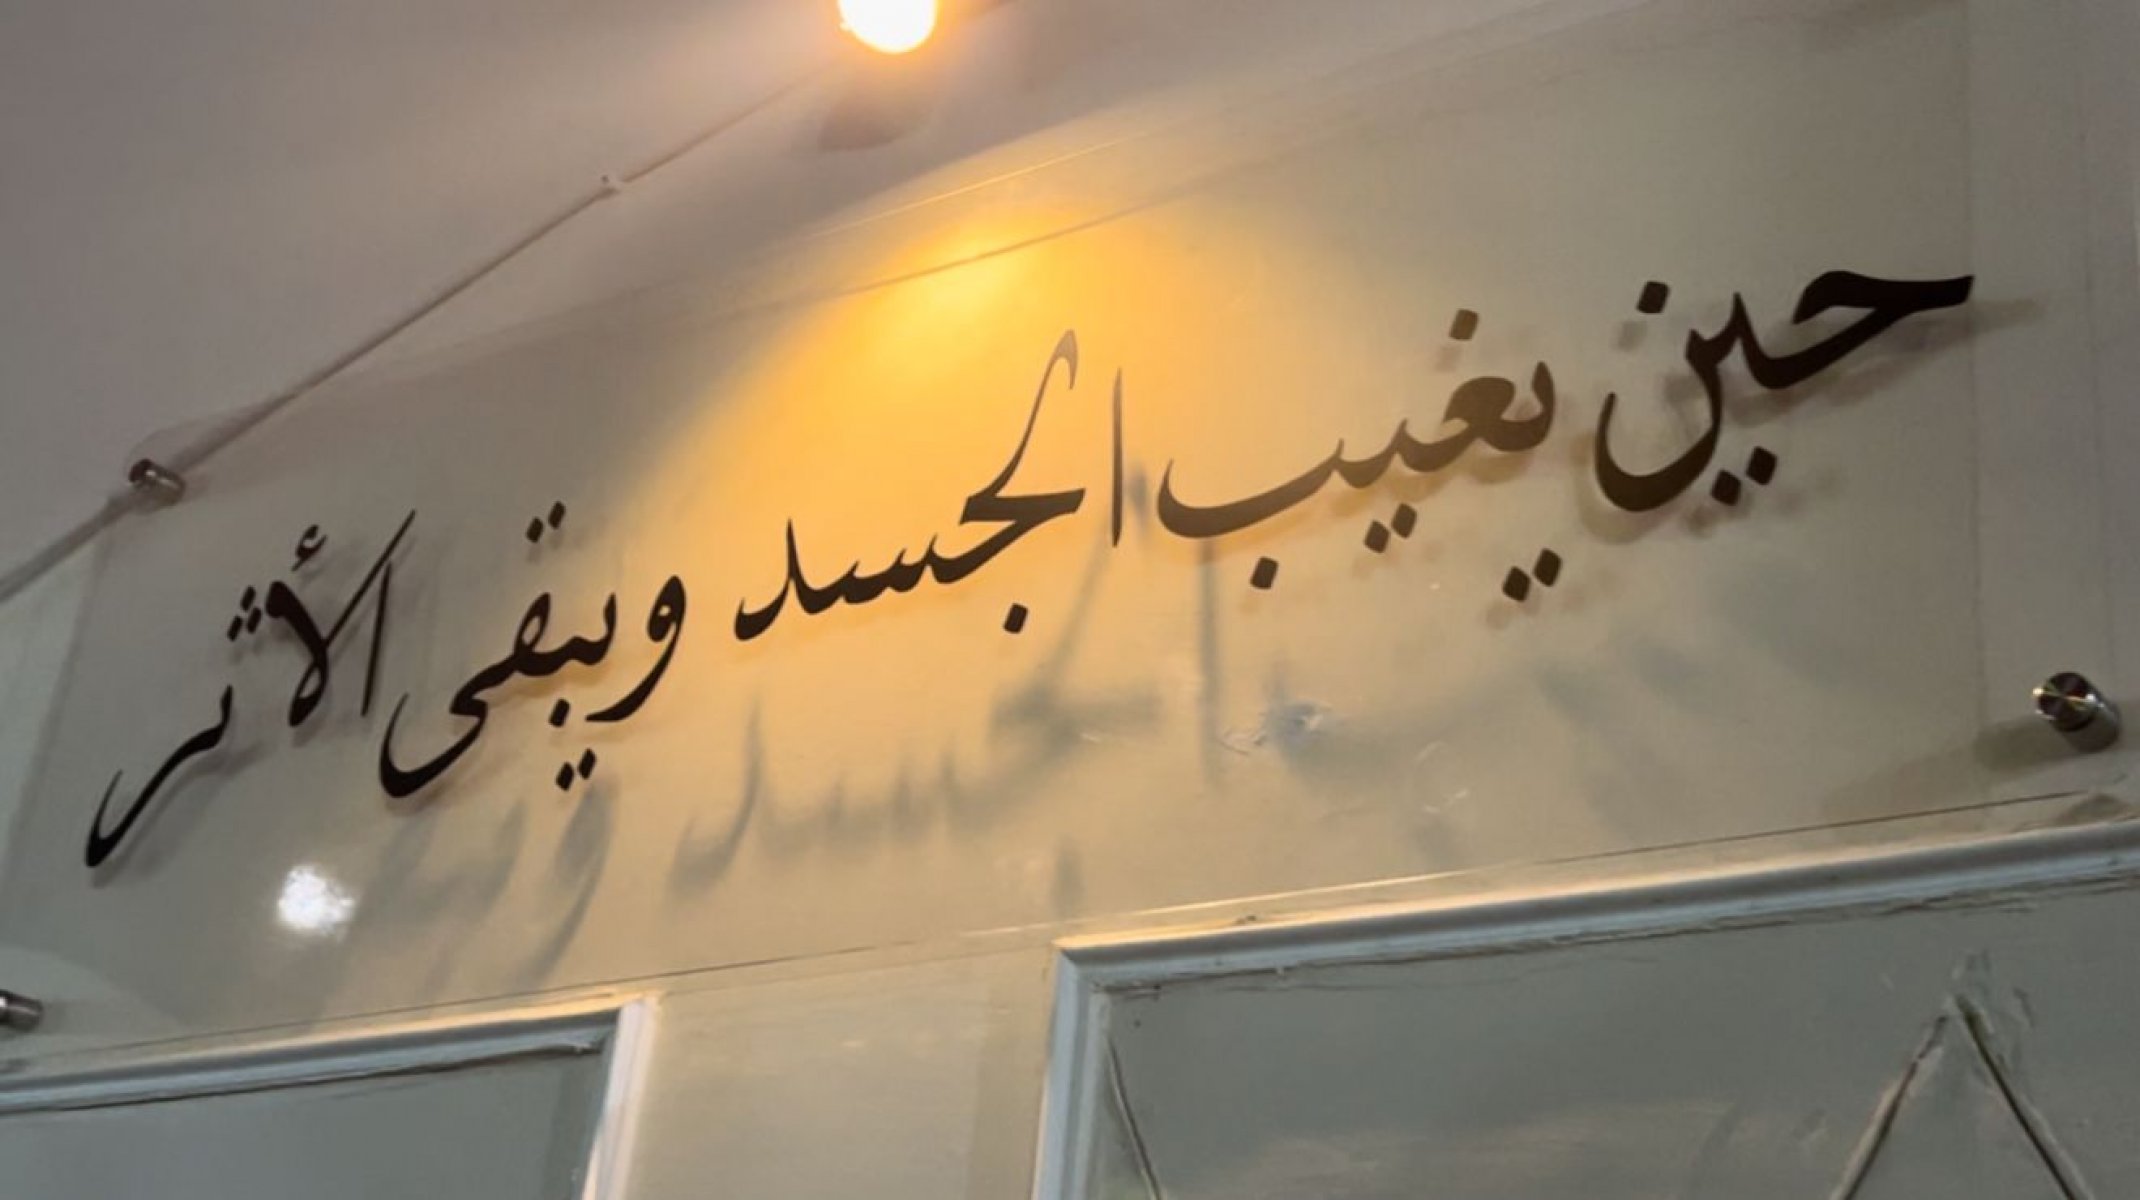 حين يغيب الجسد ويبقى الأثر